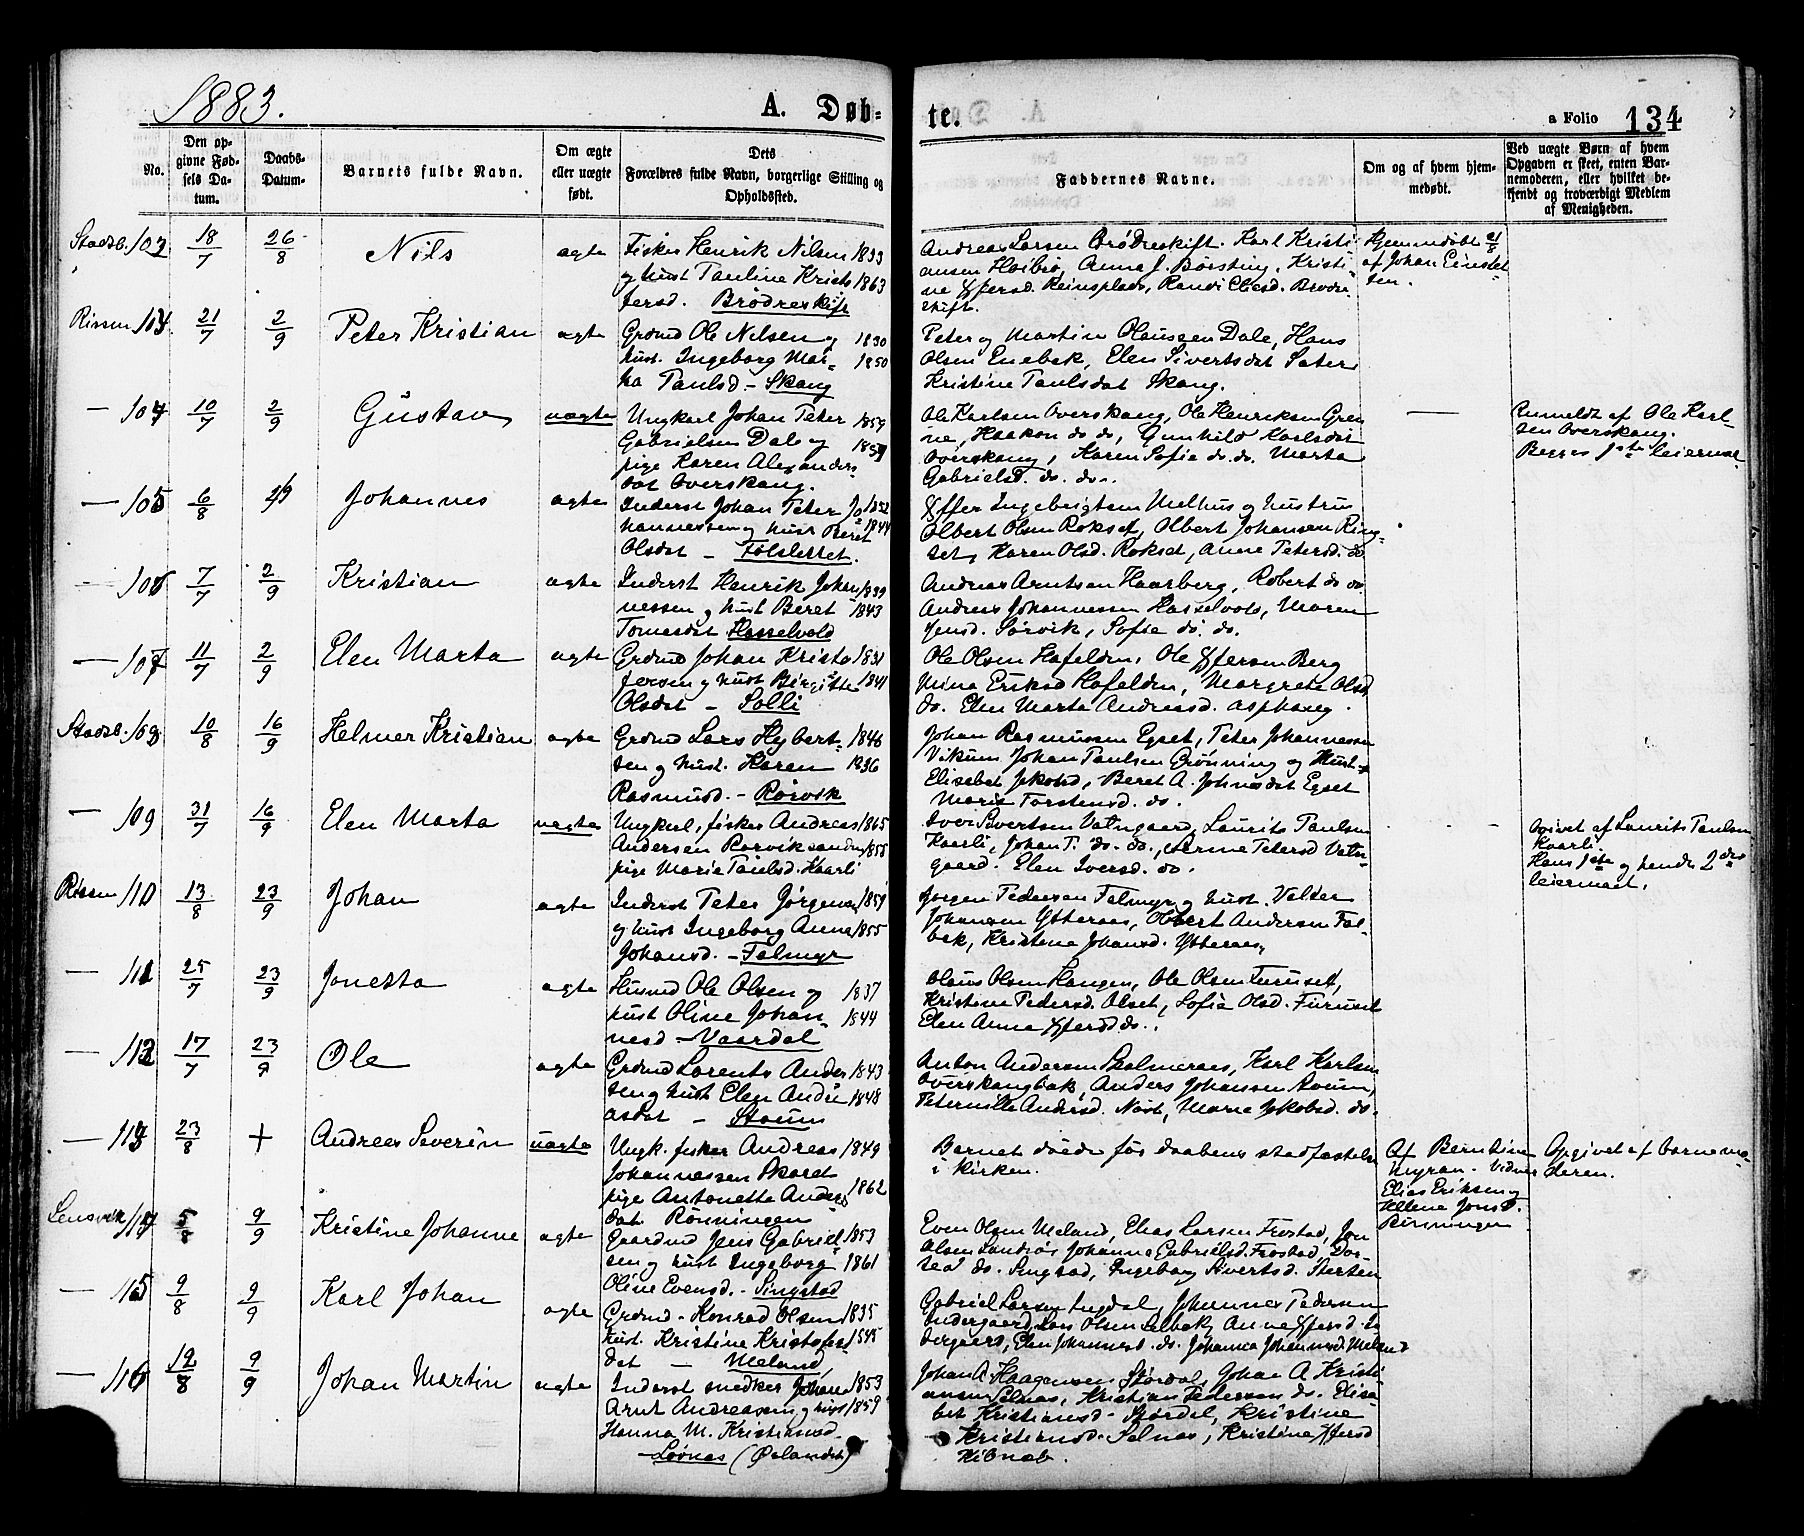 1883.
A. Døb-
te.
a Folio 134
No.
Den op-
givne Fød-
sels Da-
tum.
Daabs-
Datum.
Barnets fulde Navn.
Om ægte
eller uægte
født.
Dets
Forældres fulde Navn, borgerlige Stilling og
Opholdssted.
Faddernes Navne.
Om og af hvem hjem-
medøbt.
Ved uægte Børn af hvem
Opgaven er skeet, enten Bar-
nemoderen, eller hvilket be-
kjendt og troværdigt Medlem
af Menigheden.
Stadsb. 102 18/7 26/8 Nils ægte
Fisker Henrik Nilsen 1833
og Hust Pauline Kristo 1863
fersd. Brødreskift
Andreas Larsen Brødreskift. Karl Kristi-
ansen Høibrø, Anna J. Børsting, Kristi-
ne Xfersd. Reinsplads, Randi Elesd. Brødre-
skift.
Hjemmedøbt 21/8
af Johan Einstet-
ten.
Rissen 103 21/7 2/9 Peter Kristian ægte
Grdmd Ole Nilsen og 1830
Hust. Ingeborg Mar- 1850
ta Paulsd - Skang
Peter og Martin Olaussen Dale, Hans
Olsen Enebek, Elen Sivertsdat Sæter
Kristine Paulsdat Skang.
— 104 10/7 2/9 Gustav uægte
Ungkarl Johan Peter 1859
Gabrielsen Dale og 1857
pige Karen Alexanders
dat Overskang.
Ole Karlsen Overskang, Ole Henriksen Gren-
ne, Haakon do do, Gunhild Karlsdat
Overskang, Karen Sofie do. do. Marta
Gabrielsd. do. do.
Anmeldt af Ole Karl-
sen Overskang.
Begges 1ste Leiermaal
— 105 6/8 2/9 Johannes ægte
Inderst Johan Peter Jo- 1852
hannessen og Hust Beret 1844
Olsdat - Følslettet.
Xffer Ingebrigtsen Melhus og Hustru
Olbert Olsen Rokset, Olbert Johansen Ring-
set, Karen Olsd. Rokset, Anne Petersd. do
— 106 7/7 2/9 Kristian ægte
Inderst Henrik Johan 1839
nessen og Hust Beret 1843
Tomesdat Hasselvold
Andreas Arntsen Haarberg, Robert do do
Andreas Johannessen Hasselvold, Maren
Jensd. Sørvik, Sofie do. do.
— 107 11/7 2/9 Elen Marta ægte
Grdmd Johan Kristo 1831
fersen og Hust Birgitte 1841
Olsdat - Solli
Ole Olsen Hafelden, Ole Xffersen Berg
Mina Eriksd Hafelden, Margrete Olsd.
do. Elen Marta Andreasd. Asphaug.
Stadsb. 108 10/8 16/9 Helmer Kristian ægte
Grdmd Lars Hybert- 1846
sen og Hust. Karen 1836
Rasmusd. - Rørvik
Johan Rasmussen Egset, Peter Johannessen
Vikum Johan Paulsen Grønning og Hust.
Elisabet Jakobsd, Beret A. Johnsdat Egset
Marie Torstensd. do.
— 109 31/7 16/9 Elen Marta uægte
Ungkarl, fisker Andreas 1865
Andersen Rørviksanden 1855
pige Marie Paulsd. Kaarli
Iver Sivertsen Vatngaard, Laurits Paulsen
Kaarli, Johan P. do. do., Anne Petersd Vatn-
gaard. Elen Iversd. do.
Opgivet af Laurits Paulsen
Kaarli
Hans 1ste og hendes 2det
leiermaal.
Rissen 110 13/8 23/9 Johan ægte
Inderst Peter Jørgensen 1859
og Hust Ingeborg Anna 1855
Johansd. - Falmyr
Jørgen Pedersen Falmyr og Hust. Valter
Johansen Ytteraas, Olbert Andersen Fal-
bek, Kristine Johansd. Ytteraas.
— 111 25/7 23/9 Jonetta ægte
Husmd Ole Olsen og 1837
Hust Oline Johan- 1844
nesd - Vaardal
Olaus Olsen Hangen, Ole Olsen Furuset,
Kristine Pedersd. Olset, Sofie Olsd. Furuset
Elen Anna Xfersd do.
— 112 17/7 23/9 Ole ægte
Grdmd Lorents Ander 1843
sen og Hust Elen Andre 1848
asdat - Stoum
Anton Andersen Skolmeraas, Karl Karlsen
Overskangbak, Anders Johansen Roum,
Peternille Andersd. Nøst, Marie Jakobsd. do.
— 113 23/8 + Andreas Severin uægte
Ungk. fisker Andreas 1849
Johannessen Skaret
pige Antonette Anders 1862
dat. Rønningen
Barnet døde før daabens stadfæstelse
i kirken.
Af Berntine
Myran. Vidner
Elias Eriksen og
Helene Jonsd.
Rønningen
Opgivet af barnemo-
deren.
Lensvik 114 5/8 9/9 Kristine Johanne ægte
Gaardmd Jens Gabriel- 1853
sen og Hust Ingeborg 1861
Oline Evensd. - Singstad
Even Olsen Meland, Elias Larsen Frøstad, Jon
Olsen Landrø, Johanna Gabrielsd. Frøstad, Dor-
tea do. Singstad, Ingeborg Sivertsd. Storten
— 115 9/8 9/9 Karl Johan ægte
Grdmd - Konrad Olsen 1835
Hust. Kristine Kristofers 1845
dat — Meland,
Gabriel Larsen Ingdal, Johannes Pedersen
Undergaard, Lars Olsen Selbek, Anne Xfersd. Un-
dergaard, Elen Johannesd. do. Johanna Johannesd. Meland
— 116 19/8 9/9 Johan Martin ægte
Inderst snedker Johan 1853
Arnt Andreassen og Hust 1859
Hanna M. Kristiansd.
- Løvnes (Ørlandet)
Johan A Haagensen Størdal, Johan A Kristi-
ansen Selnes, Kristian Pedersen do. Elisa-
bet Kristiansd. Størdal, Kristine
Kristiansd. Selnes, Kristine Xfersd
Hibnab.